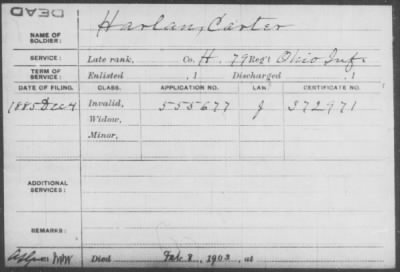 DEAD
NAME OF SOLDIER: Harlan, Carter
SERVICE: Late rank, Co. H. 79 Reg't Ohio Inf.
TERM OF SERVICE: Enlisted , 1 Discharged , 1
DATE OF FILING. CLASS. APPLICATION NO. LAW. CERTIFICATE NO.
1885 Dec 4 Invalid, 555677 J 372971
Widow,
Minor,
ADDITIONAL SERVICES:
REMARKS:
Died Feb. 8, 1903, at